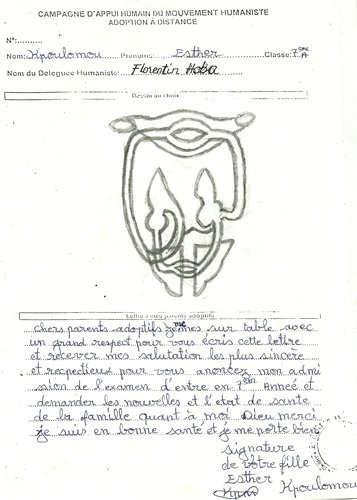 CAMPAGNE D'APPUI HUMAIN DU MOUVEMENT HUMANISTE
ADOPTION À DISTANCE
N°:..........
Nom: Kpoulomou Prenoms: Esther Classe: 7ème A
Nom du Deleguee Humaniste: Florentin Haba
Dessin au choix
Lettre à mes parents adoptifs
chers parents adoptifs sur table avec
un grand respect pour vous écris cette lettre
et recever mes salutation les plus sincere
et respectieux pour vous anoncez mon admi
ssion de l'examen d'entre en 7ème Anneé et
demander les nouvelles et l'état de sante
de la famille quant à moi Dieu merci
je suis en bonne santé et je me porte bien
signature
de votre fille
Esther
Kpoulomou